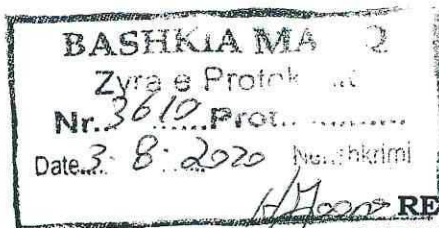 BASHKIA MA Q
Zyra e Protok
Nr. 3610 Prot.
Date 3. 8. 2020 Nenshkrimi
RE